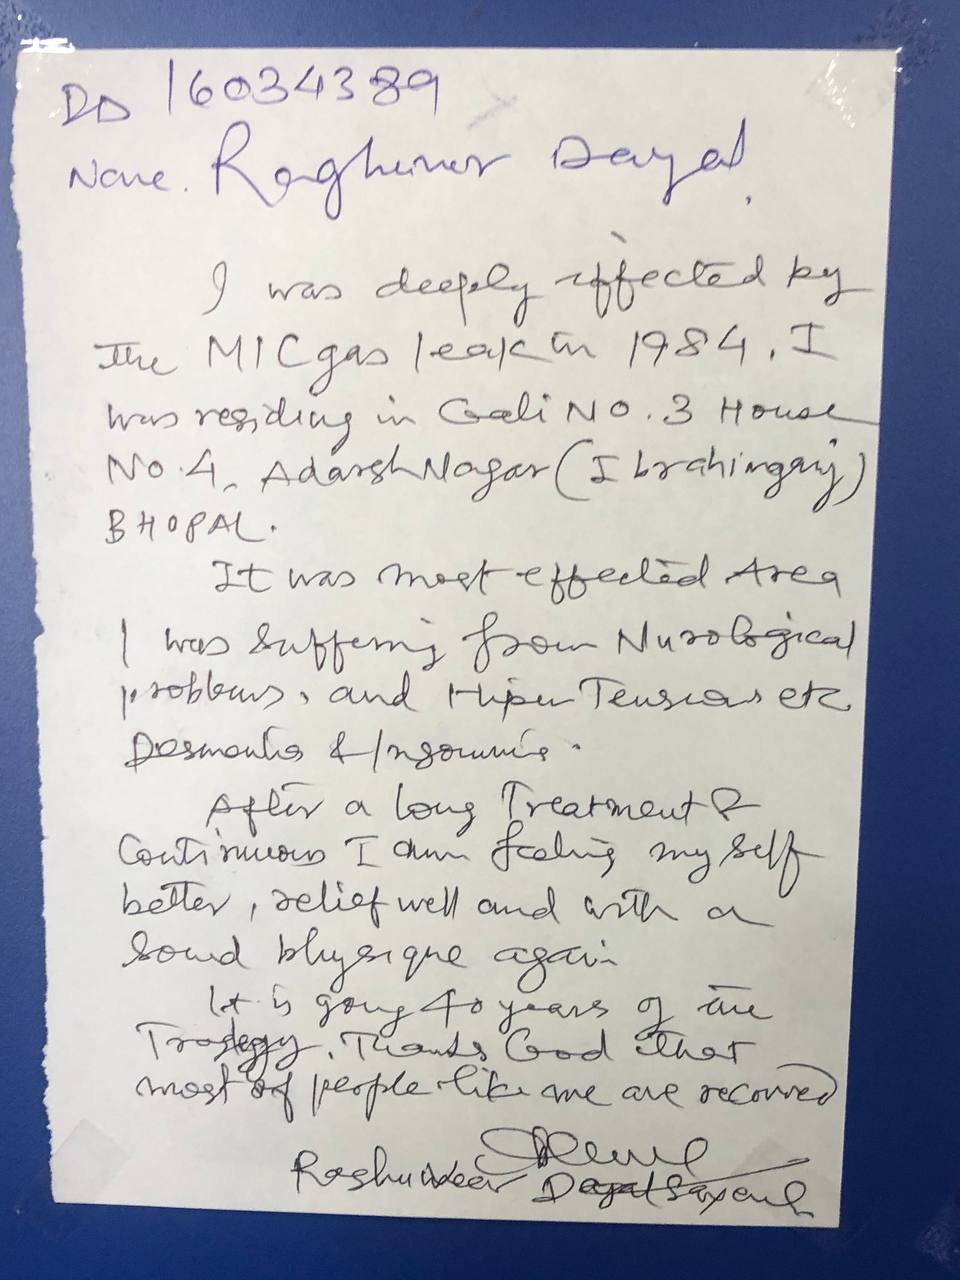 DD 16034389
Name. Raghuveer Dayal,
I was deeply effected by
the MIC gas leak in 1984. I
was residing in Gali No. 3 House
No. 4, Adarsh Nagar (Ibrahimganj)
BHOPAL.
It was most effected Area
I was suffering from Nurological
problems, and Hiper Tension etc
& Insomnia.
After a long Treatment &
Continuous I am feeling my self
better, relief well and with a
sound physique again
It is going 40 years of the
Tradegy. Thanks Good that
most of people like me are recovred
Raghuveer Dayal Saxena